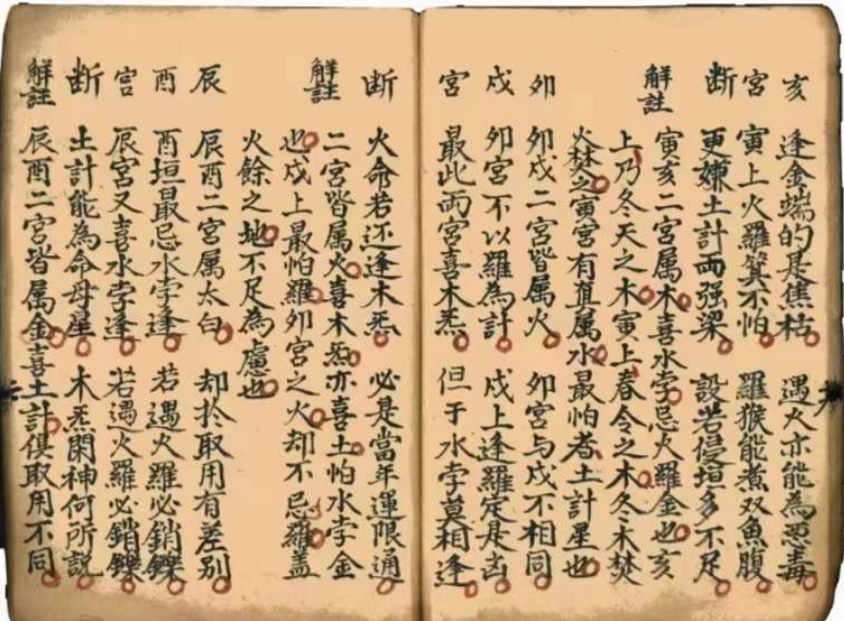 亥 逢金端的是焦枯 遇火亦能為惡毒
宮 寅上火羅箕不怕 羅猴能煮双魚腹
断 更嫌土計两强梁 設若侵垣多不足
解註 寅亥二宮属木喜水孛忌火羅金也亥
上乃冬天之木寅上春令之木冬木焚
火焚之寅宮有属水最怕者土計星也
卯 卯戍二宮皆属火 卯宮与戍不相同
戍 卯宮不以羅為計 戍上逢羅定是凶
宮 最此两宮喜木炁 但于水孛莫相逢
断 火命若还逢木炁 必是當年運限通
解註 二宮皆属火喜木炁亦喜土怕水孛金
也戍上最怕羅卯宮之火却不忌羅蓋
火餘之地不足為慮也
辰 辰酉二宮属太白 却扵取用有差别
酉 酉垣最忌水孛逢 若遇火羅必銷鑠
宮 辰宮又喜水孛逢 若遇火羅必銷鑠
断 土計能為命母星 木炁閑神何所説
解註 辰酉二宮皆属金喜土計俱取用不同